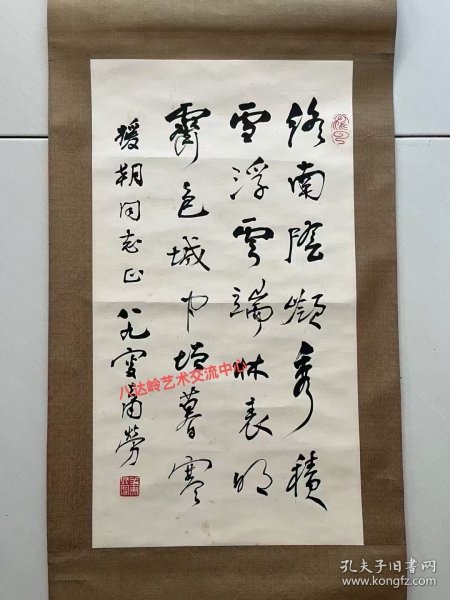 终南阴岭秀積
雪浮雲端林表明
霽色城中增暮寒
媛朔同志正
八九叟萧劳
八达岭艺术交流中心
孔夫子旧书网
www.kongfz.com